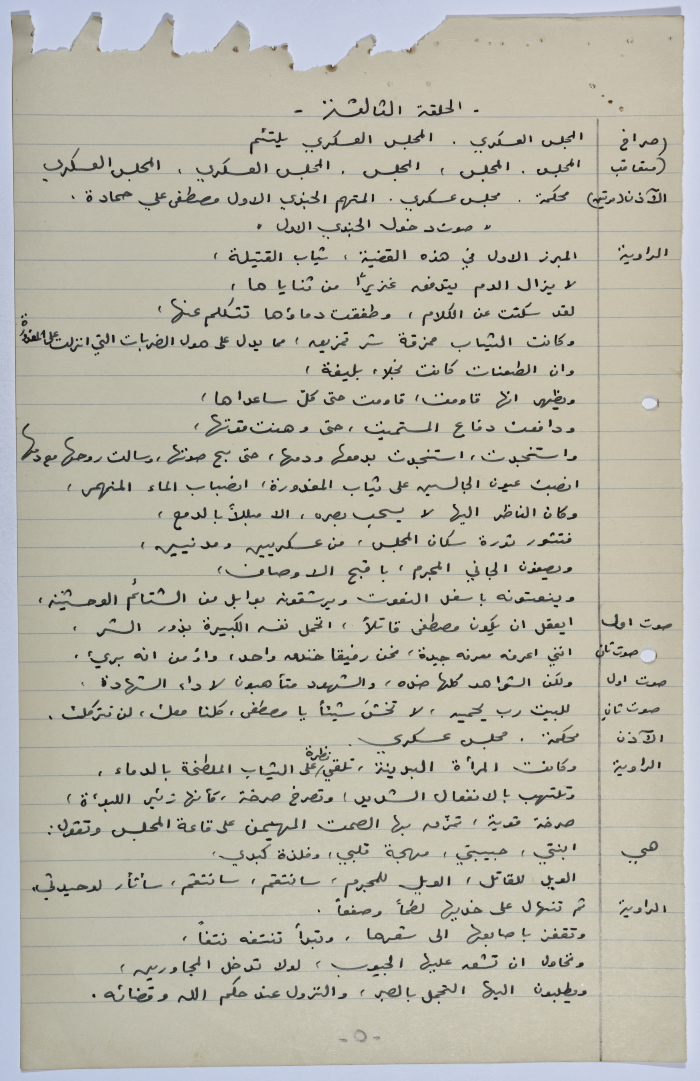 - الحلقة الثالثة -
(صراخ المجلس العسكري . المجلس العسكري يلتئم
(متعاقب المجلس . المجلس ، المجلس . المجلس العسكري . المجلس العسكري
الآذن (مرتين) محكمة . مجلس عسكري . المتهم الجندي الاول مصطفى علي حمادة .
" صوت دخول الجندي الاول "
الراوية المبرز الاول في هذه القضية ، ثياب القتيلة ،
لا يزال الدم يتدفق غزيراً من ثناياها ،
لقد سكتت عن الكلام ، وطفقت دماؤها تتكلم عنها ،
وكانت الثياب ممزقة شر تمزيق ، مما يدل على هول الضربات التي انزلت على المغدورة
وان الطعنات كانت نجلاء بليغة ،
ويظهر انها قاومت ، قاومت حتى كلّ ساعداها ،
ودافعت دفاع المستميت ، حتى وهنت قوتها ،
واستنجدت ، استنجدت بدموعها ودمها ، حتى بح صوتها ، وسالت روحها مع دمها
انصبت عيون الجالسين على ثياب المغدورة ، انصباب الماء المنهمر ،
وكان الناظر اليها لا يسحب بصره ، الا مبللاً بالدمع ،
فتثور ثورة سكان المجلس ، من عسكريين ومدنيين ،
ويصفون الجاني المجرم ، باقبح الاوصاف ،
وينعتونه باسفل النعوت ويرشقونه بوابل من الشتائم الوحشية ،
صوت اول ايعقل ان يكون مصطفى قاتلاً ، اتحمل نفسه الكبيرة بذور الشر ،
صوت ثان انني اعرفه معرفة جيدة ، نحن رفيقا خندق واحد ، واؤمن انه بريء ،
صوت اول ولكن الشواهد كلها ضده ، والشهود متأهبون لاداء الشهادة .
صوت ثانٍ للبيت رب يحميه ، لا تخش شيئاً يا مصطفى ، كلنا معك ، لن نتركك .
الآذن محكمة . مجلس عسكري .
الراوية وكانت المرأة البدينة ، تلقي نظرة على الثياب الملطخة بالدماء ،
وتلتهب بالانفعال الشديد ، وتصرخ صرخة ، كأنها زئير اللبوءة ،
صرخة قوية ، تمزق بها الصمت المهيمن على قاعة المجلس وتقول :
هي ابنتي ، حبيبتي ، مهجة قلبي ، وفلذة كبدي ،
الويل للقاتل ، الويل للمجرم ، سانتقم ، سانتقم ، سأثأر لوحيدتي "
الراوية ثم تنهال على خديها لطماً وصفعاً .
وتقفز باصابعها الى شعرها ، وتبدأ تنتفه نتفاً ،
وتحاول ان تشق عليها الجيوب ، لولا تدخل المجاورين ،
ويطلبون اليها التجمل بالصبر ، والنزول عند حكم الله وقضائه .
- ٥ -